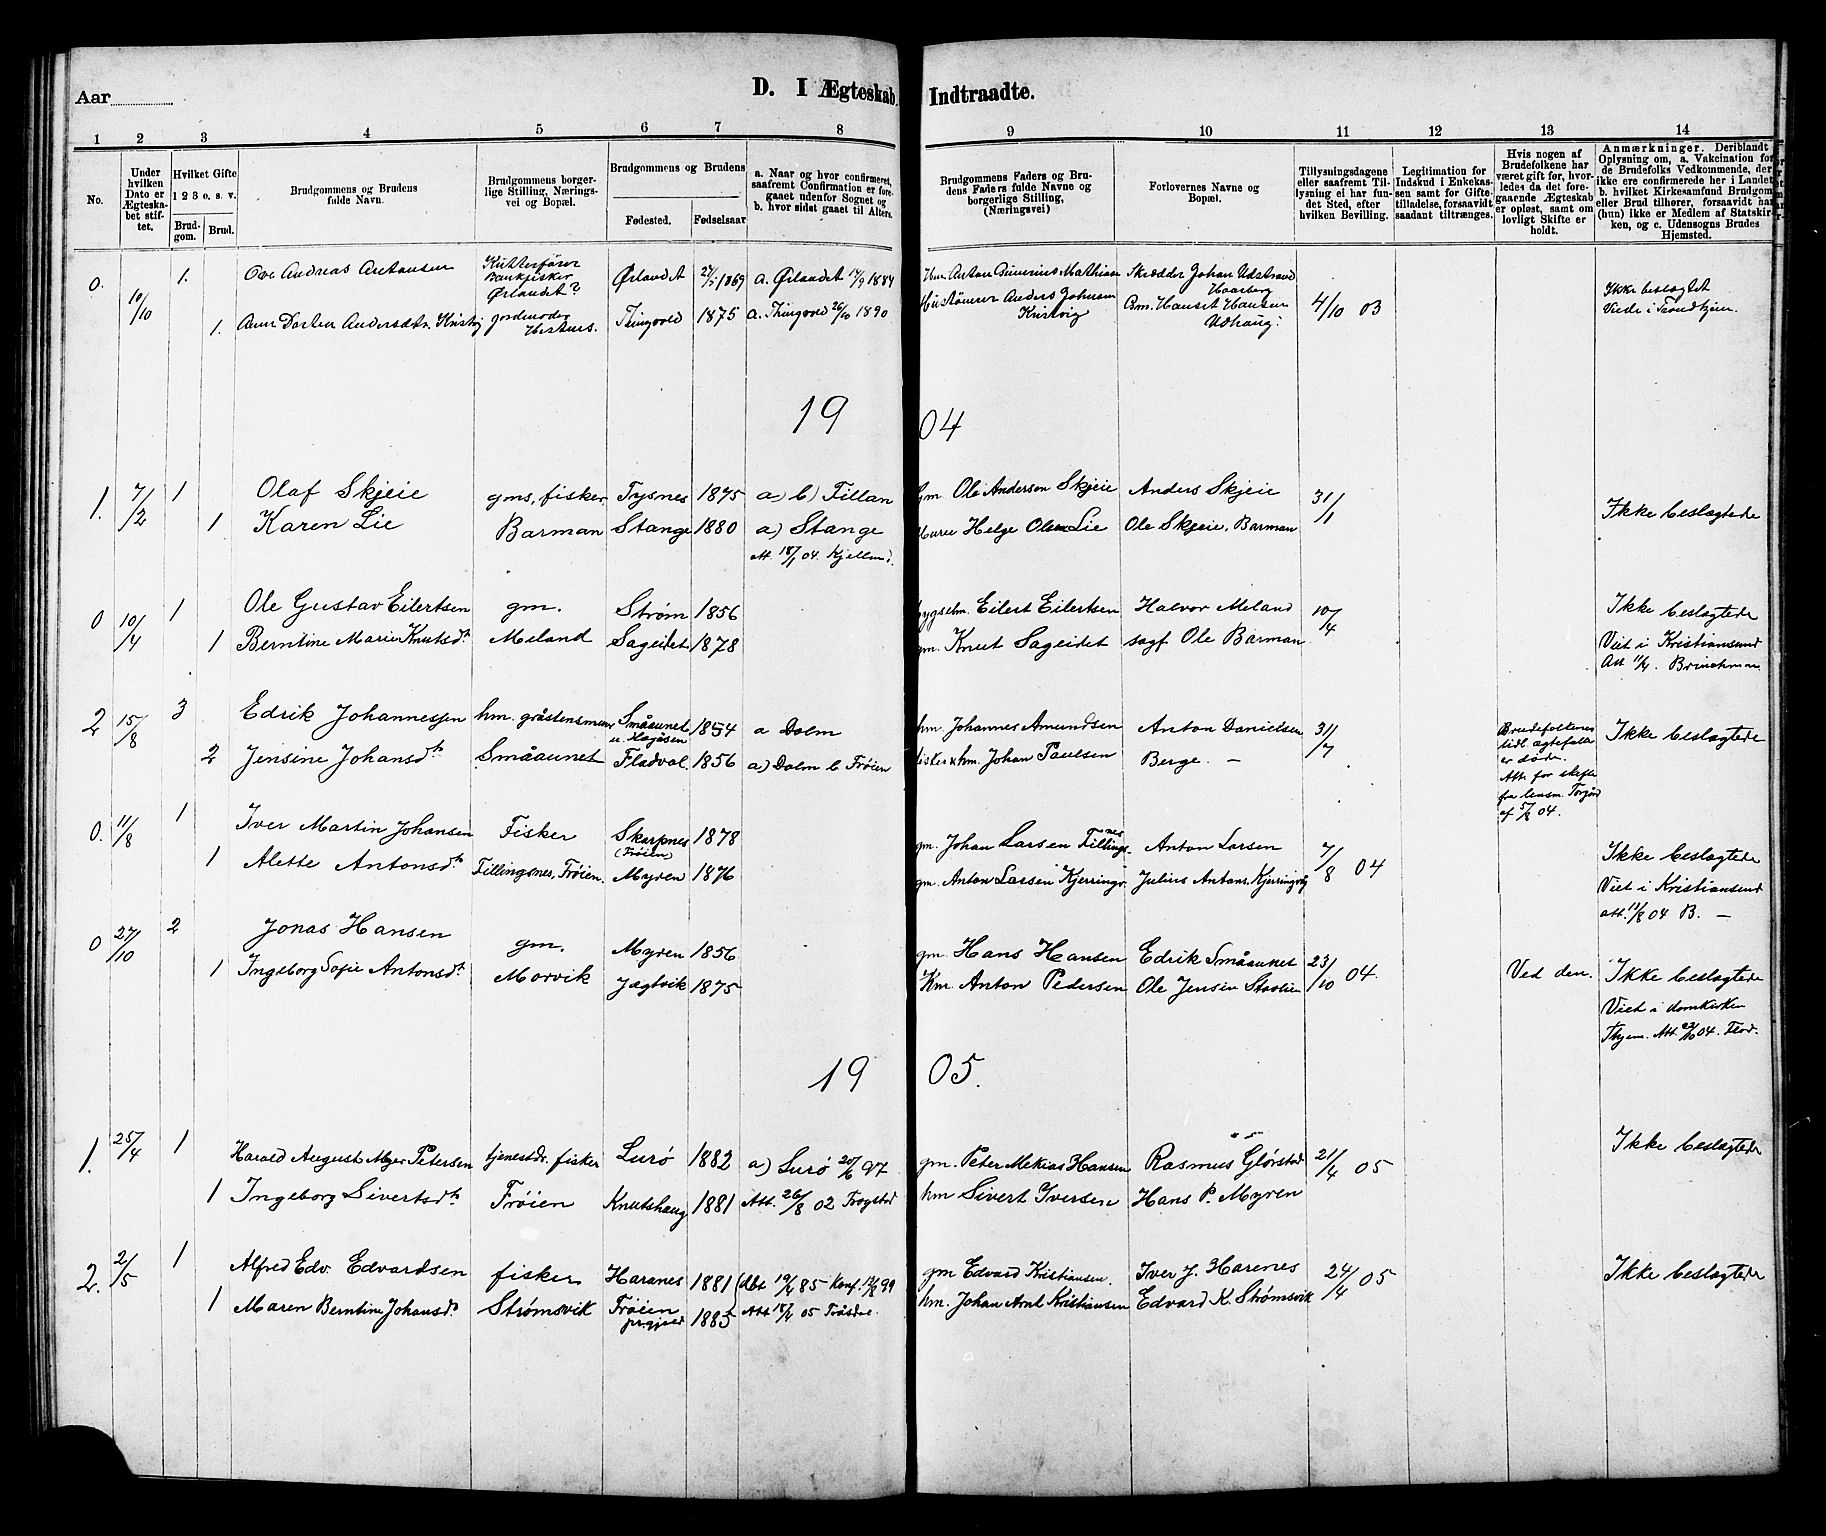 Aar
D. I Ægteskab Indtraadte.
1 2 3 4 5 6 7 8 9 10 11 12 13 14
No.
Under hvilken Dato er Ægteskabet stiftet.
Hvilket Gifte 1 2 3 o. s. v.
Brudgom. Brud.
Brudgommens og Brudens fulde Navn.
Brudgommens borgerlige Stilling, Næringsvei og Bopæl.
Brudgommens og Brudens
Fødested. Fødselsaar
a. Naar og hvor confirmeret, saafremt Confirmation er foregaaet udenfor Sognet og b. hvor sidst gaaet til Alters.
Brudgommens Faders og Brudens Faders fulde Navne og borgerlige Stilling, (Næringsvei)
Forlovernes Navne og Bopæl.
Tillysningsdagene eller saafremt Tillysning ei har fundet Sted, efter hvilken Bevilling.
Legitimation for Indskud i Enkekassen samt for Giftetilladelse, forsaavidt saadant tiltrænges.
Hvis nogen af Brudefolkene har været gift før, hvorledes da det foregaaende Ægteskab er opløst, samt om lovligt Skifte er holdt.
Anmærkninger. Deriblandt Oplysning om, a. Vakcination for de Brudefolks Vedkommende, der ikke ere confirmerede her i Landet, b. hvilket Kirkesamfund Brudgom eller Brud tilhører, forsaavidt han (hun) ikke er Medlem af Statskirken, og c. Udensogns Brudes Hjemsted.
0. 10/10 1. Ove Andreas Antonsen Kutterfører Bankfisker Ørlandet? Ørlandet 27/5 1869 a. Ørlandet 14/9 1884 Hm. Anton Mathisen Skrædder Johan Udstrand Haarberg 4/10 03 Ikke beslægtet
1. Andersdtr. Kristvig jordmoder Thingvold 1875 a. Thingvold 26/10 1890 Anders Johnsen Kristvig Bm. Hanset Hansen Udhaug. Viede i Trondhjem.
19 04
1. 7/2 1 Olaf Skjeie gms, fisker Tysnes 1875 a) b) Fillan Gm Ole Andersen Skjeie Anders Skjeie 31/1 Ikke beslægtede
1 Karen Lie Barman Stange 1880 a) Stange Helge Olsen Lie Ole Skjeie, Barman
att. 18/1 04. Kjellmo.
0 10/4 1 Ole Gustav Eilertsen gm. Strøm 1856 bygselm. Eilert Eilertsen Halvor Meland 10/4 Ikke beslægtede
1 Berntine Marie Knutsdtr Meland Sageidet 1878 gm. Knut Sageidet sagf. Ole Barman Viet i Kristiansund
Att 11/4. Brinchman
2 15/8 3 Edrik Johannessen hm. gråstensmurer Småaunet u. Hagåsen 1854 a Dolm hm. Johannes Amundsen Anton Danielsen 31/7 Brudefolkenes tidl. ægtefeller er døde. Att. for skifte fra lensm. Torgård af 5/8 04. Ikke beslægtede
2 Jensine Johansdtr Småaunet Fladval 1856 a) Dolm b Frøien fisker & hm. Johan Paulsen Berge. —
0. 11/8 1 Iver Martin Johansen Fisker Skarpnes (Frøien) 1878 gm. Johan Larsen Fillingsnes Anton Larsen 7/8 04 Ikke beslægtede
1 Alette Antonsdtr Fillingsnes, Frøien. Myren 1876 gm. Anton Larsen Kjerringv. Julius Antons. Kjerringvåg Viet i Kristiansund
att. 11/8 04 B. —
0 27/10 2 Jonas Hansen gm. Myren 1856 gm Hans Hansen Edrik Småaunet 23/10 04 Ved den. Ikke beslægtede
1 Ingeborg Sofie Antonsdtr Morvik Jægtvik 1875 Km. Anton Pedersen Ole Jensen Viet i domkirken
Thjem. Att. 04.
19 05.
1. 25/4 1 Harald August Mejer Petersen tjenestdr. fisker Lurø 1882 a) Lurø 20/6 97 gm. Peter Mekias Hansen Rasmus Glørstad 21/4 05 Ikke beslægtede
1 Ingeborg Sivertsdtr Frøien Knutshaug 1881 Att. 26/8 02 Frogstad hm Sivert Iversen Hans P. Myren
2. 2/5 1 Alfred Edv. Edvardsen fisker Haranes 1881 (dbt 19/4 85 Konf. 13/8 99 gm Edvard Kristiansen. Iver J. Harenes 24/4 05 Ikke beslægtede
1 Maren Berntine Johansdtr Strømsvik Frøien prgjeld 1885 Att 18/4 05 hm. Johan Arnt Kristiansen Edvard K. Strømsvik